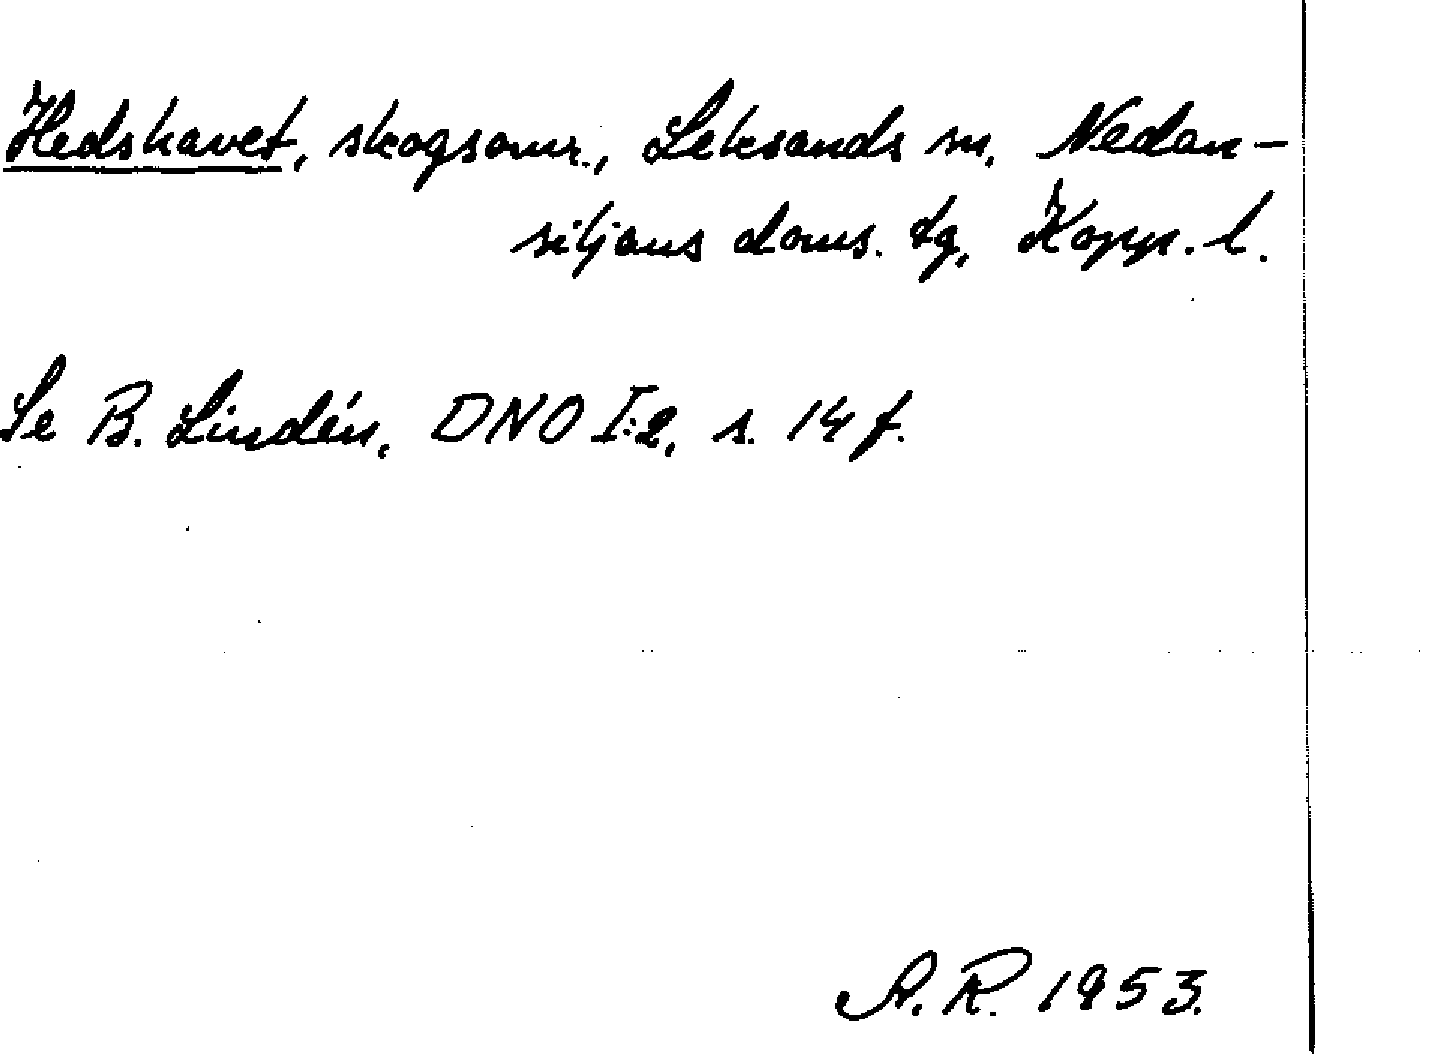 Hedshavet, skogsomr., Leksands sn, Nedan-
siljans doms. tg, Kopp. l.
Se B. Lindén, DNO I:2, s. 14 f.
A. R. 1953.